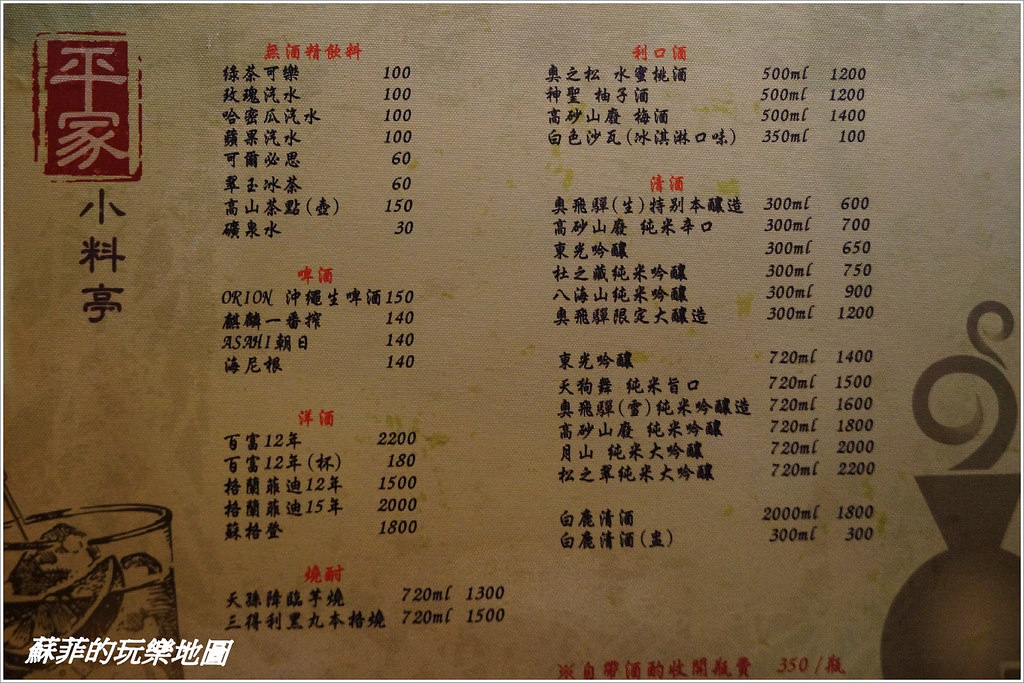 平家
小料亭
無酒精飲料
綠茶可樂 100
玫瑰汽水 100
哈密瓜汽水 100
蘋果汽水 100
可爾必思 60
翠玉冰茶 60
高山茶點(壺) 150
礦泉水 30
啤酒
ORION 沖繩生啤酒 150
麒麟一番搾 140
ASAHI朝日 140
海尼根 140
洋酒
百富12年 2200
百富12年(杯) 180
格蘭菲迪12年 1500
格蘭菲迪15年 2000
蘇格登 1800
燒酎
天孫降臨芋燒 720ml 1300
三得利黑丸本格燒 720ml 1500
利口酒
奧之松 水蜜桃酒 500ml 1200
神聖 柚子酒 500ml 1200
高砂山廢 梅酒 500ml 1400
白色沙瓦(冰淇淋口味) 350ml 100
清酒
奧飛驒(生)特別本釀造 300ml 600
高砂山廢 純米辛口 300ml 700
東光吟釀 300ml 650
杜之藏純米吟釀 300ml 750
八海山純米吟釀 300ml 900
奧飛驒限定大釀造 300ml 1200
東光吟釀 720ml 1400
天狗舞 純米旨口 720ml 1500
奧飛驒(雪)純米吟釀造 720ml 1600
高砂山廢 純米吟釀 720ml 1800
月山 純米大吟釀 720ml 2000
松之翠純米大吟釀 720ml 2200
白鹿清酒 2000ml 1800
白鹿清酒(盅) 300ml 300
※自帶酒酌收開瓶費 350/瓶
蘇菲的玩樂地圖